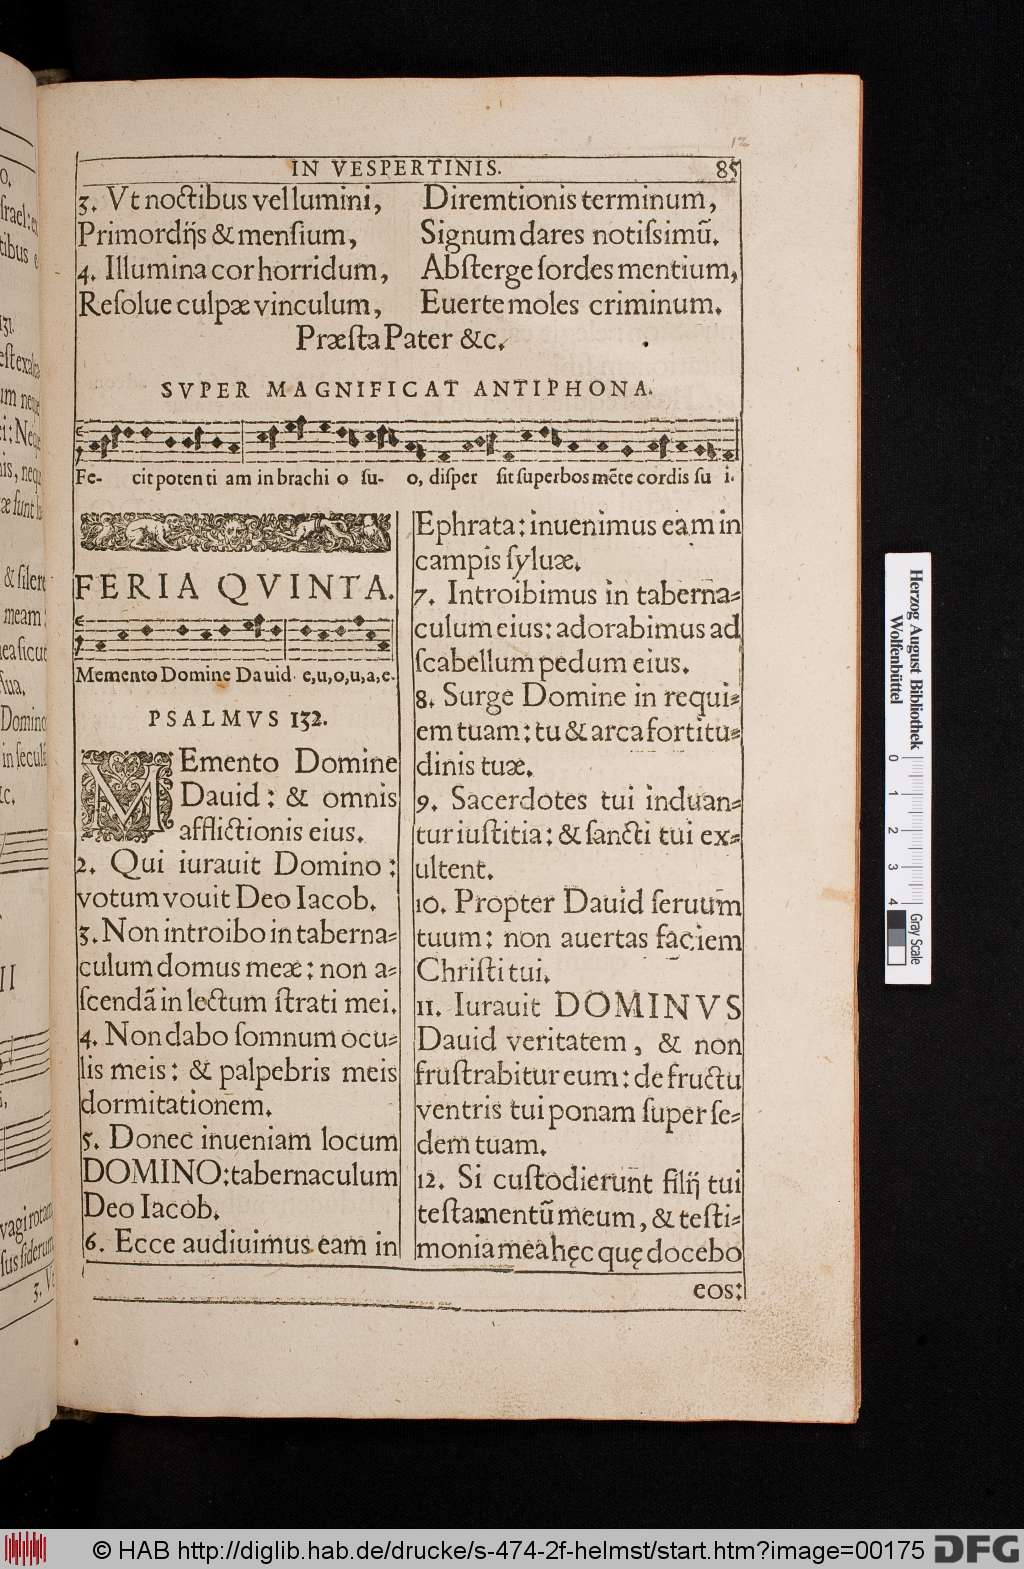 12
IN VESPERTINIS. 85
3. Vt noctibus vel lumini,
Primordijs & mensium,
4. Illumina cor horridum,
Resolue culpæ vinculum,
Diremtionis terminum,
Signum dares notissimũ.
Absterge sordes mentium,
Euerte moles criminum.
Præsta Pater &c.
SVPER MAGNIFICAT ANTIPHONA.
Fe- cit poten ti am in brachi o su- o, disper sit superbos mẽte cordis su i.
FERIA QVINTA.
Memento Domine Dauid e,u,o,u,a,e.
PSALMVS 132.
MEmento Domine
Dauid: & omnis
afflictionis eius.
2. Qui iurauit Domino:
votum vouit Deo Iacob.
3. Non introibo in taberna=
culum domus meæ: non a=
scendã in lectum strati mei.
4. Non dabo somnum ocu=
lis meis: & palpebris meis
dormitationem.
5. Donec inueniam locum
DOMINO: tabernaculum
Deo Iacob.
6. Ecce audiuimus eam in
Ephrata: inuenimus eam in
campis syluæ.
7. Introibimus in taberna=
culum eius: adorabimus ad
scabellum pedum eius.
8. Surge Domine in requi=
em tuam: tu & arca fortitu=
dinis tuæ.
9. Sacerdotes tui induan=
tur iustitia: & sancti tui ex=
ultent.
10. Propter Dauid seruum
tuum: non auertas faciem
Christi tui.
11. Iurauit DOMINVS
Dauid veritatem, & non
frustrabitur eum: de fructu
ventris tui ponam super se=
dem tuam.
12. Si custodierunt filij tui
testamentũ meum, & testi=
monia mea hęc quę docebo
eos:
Herzog August Bibliothek
Wolfenbüttel
0 1 2 3 4
Gray Scale
© HAB http://diglib.hab.de/drucke/s-474-2f-helmst/start.htm?image=00175
DFG